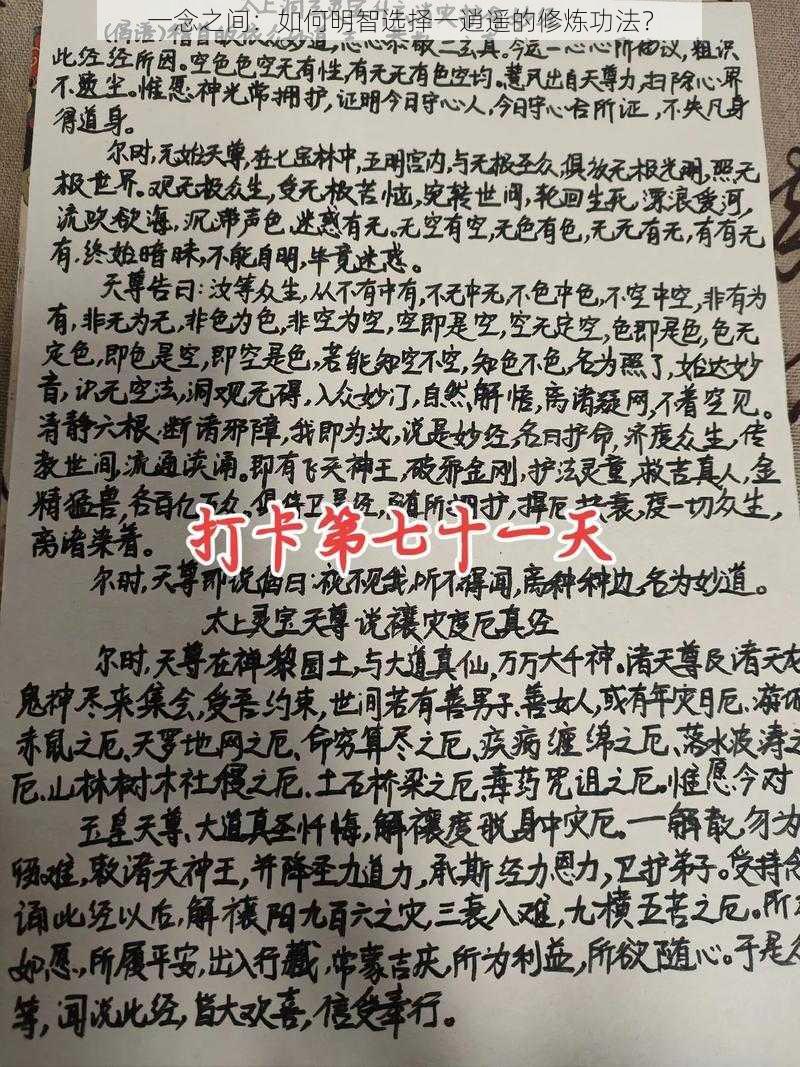 一念之间：如何明智选择一逍遥的修炼功法？
此经经所因。空色色空无有性，有无无有色空均。慧风出自天尊力，扫除心界
不蔽尘。惟愿神光常拥护，证明今日守心人，今日守心台所证，不失凡身
得道身。
尔时，无始天尊，在七宝林中，五明宫内，与无极圣众，俱放无极光明，照无
极世界。观无极众生，受无极苦恼，宛转世间，轮回生死，漂浪爱河，
流吹欲海，沉滞声色，迷惑有无。无空有空，无色有色，无无有无，有有无
有，终始暗昧，不能自明，毕竟迷惑。
天尊告曰：汝等众生，从不有中有，不无中无，不色中色，不空中空，非有为
有，非无为无，非色为色，非空为空，空即是空，空无定空，色即是色，色无
定色，即色是空，即空是色，若能知空不空，知色不色，名为照了，始达妙
音，识无空法，洞观无碍，入众妙门，自然解悟，离诸疑网，不着空见。
清静六根，断诸邪障，我即为汝，说是妙经，名曰护命，济度众生，传
教世间，流通读诵。即有飞天神王，破邪金刚，护法灵童，救苦真人，金
精猛兽，各百亿万众，俱侍卫是经，随所拥护，捍厄扶衰，度一切众生，
离诸染着。
打卡第七十一天
尔时，天尊即说偈曰：视不见我，听不得闻，离种种边，名为妙道。
太上灵宝天尊说禳灾度厄真经
尔时，天尊在禅黎国土，与大道真仙，万万六千神。诸天尊及诸天龙
鬼神尽来集会，受吾约束，世间若有善男子、善女人，或有年灾月厄、游
赤鼠之厄、天罗地网之厄、命穷算尽之厄、疾病缠绵之厄、落水波涛之
厄、山林树木社稷之厄、土石桥梁之厄、毒药咒诅之厄。惟愿今对
玉皇天尊、大道真圣忏悔，解禳度脱身中灾厄。一一解散，勿为
难，敕诸天神王，并降圣九道力，承斯经力恩力，卫护弟子。受持念
诵此经以后，解禳阳九百六之灾，三衰八难，九横五苦之厄。所
如愿，所履平安，出入行藏，常蒙吉庆，所为利益，所欲随心。于是
等，闻说此经，皆大欢喜，信受奉行。